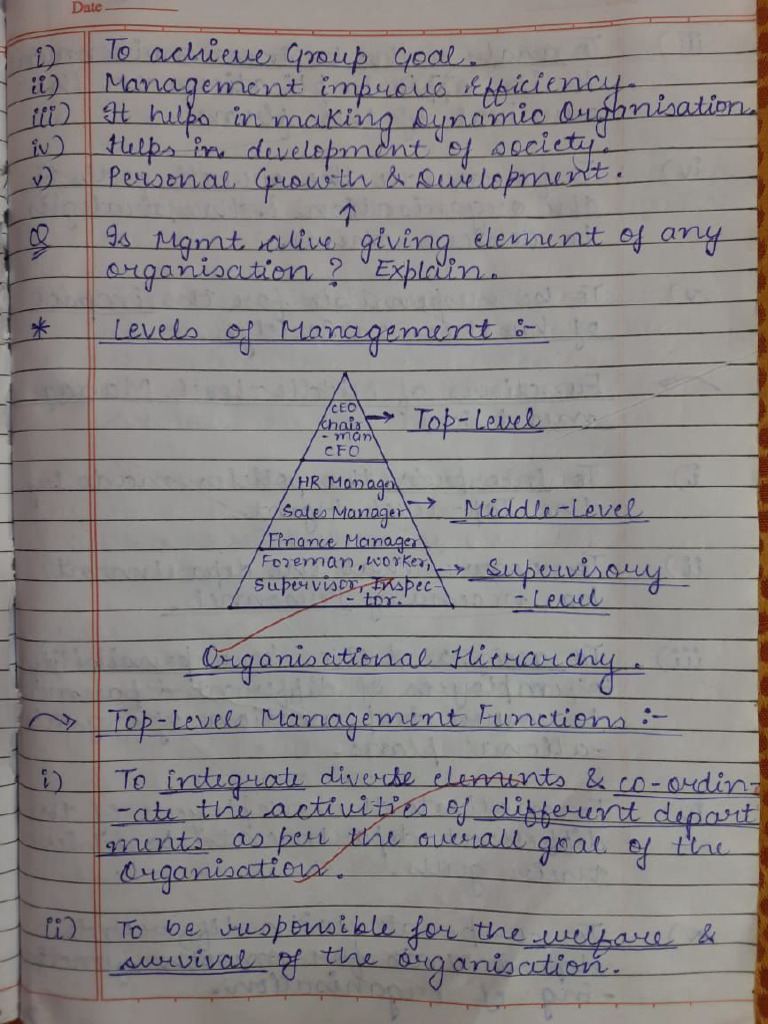 Date
i) To achieve Group Goal.
ii) Management improve efficiency.
iii) It helps in making Dynamic Organisation.
iv) Helps in development of society.
v) Personal Growth & Development.
↑
Q Is Mgmt alive giving element of any
organisation? Explain.
* Levels of Management :-
CEO
Chair
-man
CFO
→ Top-Level
HR Manager
Sales Manager
Finance Manager
→ Middle-Level
Foreman, worker,
Supervisor, Inspec-
-tor.
→ Supervisory
-Level
Organisational Hierarchy.
→ Top-Level Management Functions :-
i) To integrate diverse elements & co-ordin-
-ate the activities of different depart
ments as per the overall goal of the
Organisation.
ii) To be responsible for the welfare &
survival of the organisation.